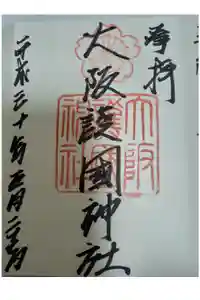 奉拝
大阪護國神社
大阪
護國
神社
平成三十年五月二十